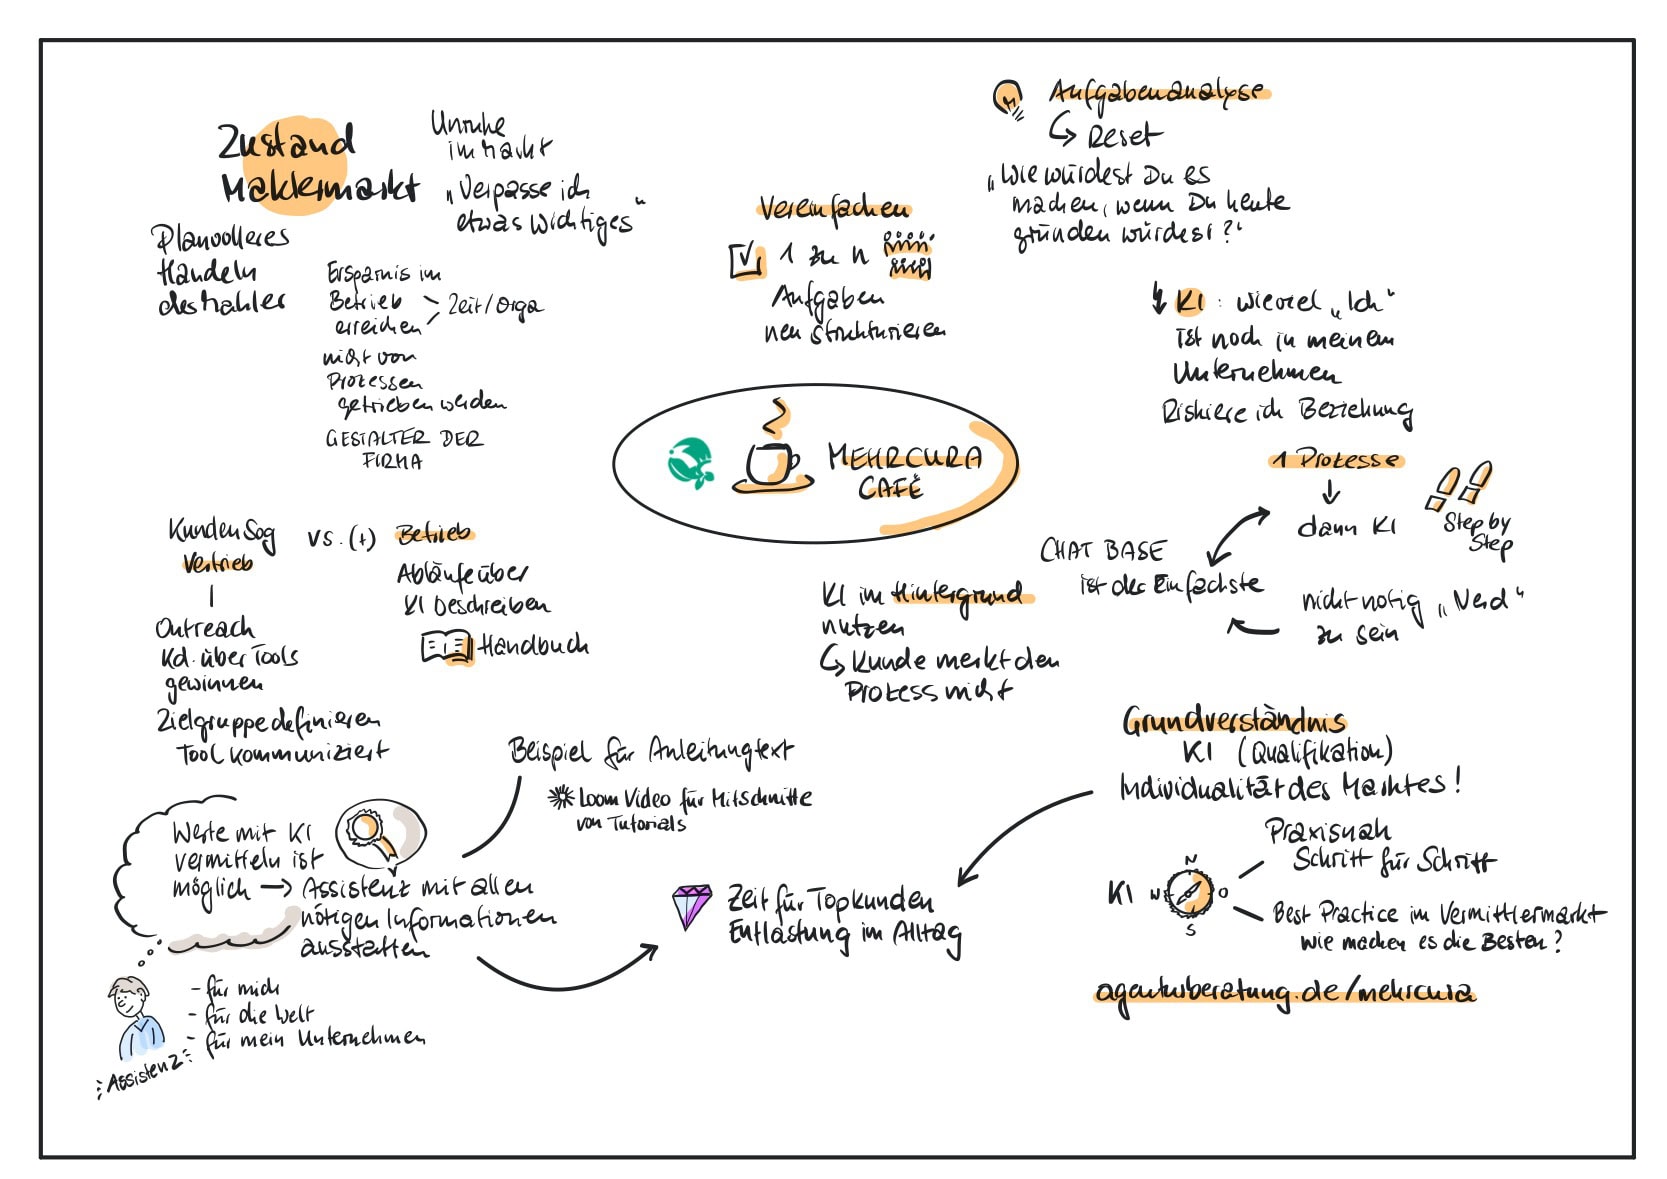 Zustand
Maklermarkt
Unruhe
im Markt
"Verpasse ich
etwas Wichtiges"
Planvolleres
Handeln
des Makler
Ersparnis im
Betrieb
erreichen
Zeit/Orga
nicht von
Prozessen
getrieben werden
GESTALTER DER
FIRMA
Vereinfachen
1 zu n
Aufgaben
neu strukturieren
Aufgabenanalyse
Reset
"Wie würdest Du es
machen, wenn Du heute
gründen würdest?"
KI: wieviel "Ich"
ist noch in meinem
Unternehmen
Riskiere ich Beziehung
MEHRCURA
CAFÉ
1 Prozesse
dann KI
Step by
Step
CHAT BASE
ist der Einfachste
nicht nötig "Nerd"
zu sein
KI im Hintergrund
nutzen
Kunde merkt den
Prozess nicht
Kunden Sog
Vertrieb
vs. (+)
Betrieb
Abläufe über
KI beschreiben
Handbuch
Outreach
Kd. über Tools
gewinnen
Zielgruppe definieren
Tool kommuniziert
Beispiel für Anleitungtext
Loom Video für Mitschnitte
von Tutorials
Werte mit KI
vermitteln ist
möglich
Assistenz mit allen
nötigen Informationen
ausstatten
- für mich
- für die Welt
- für mein Unternehmen
Assistenz
Zeit für Topkunden
Entlastung im Alltag
Grundverständnis
KI (Qualifikation)
Individualität des Marktes!
Praxisnah
Schritt für Schritt
KI
N
W
O
S
Best Practice im Vermittlermarkt
Wie machen es die Besten?
agenturberatung.de/mehrcura